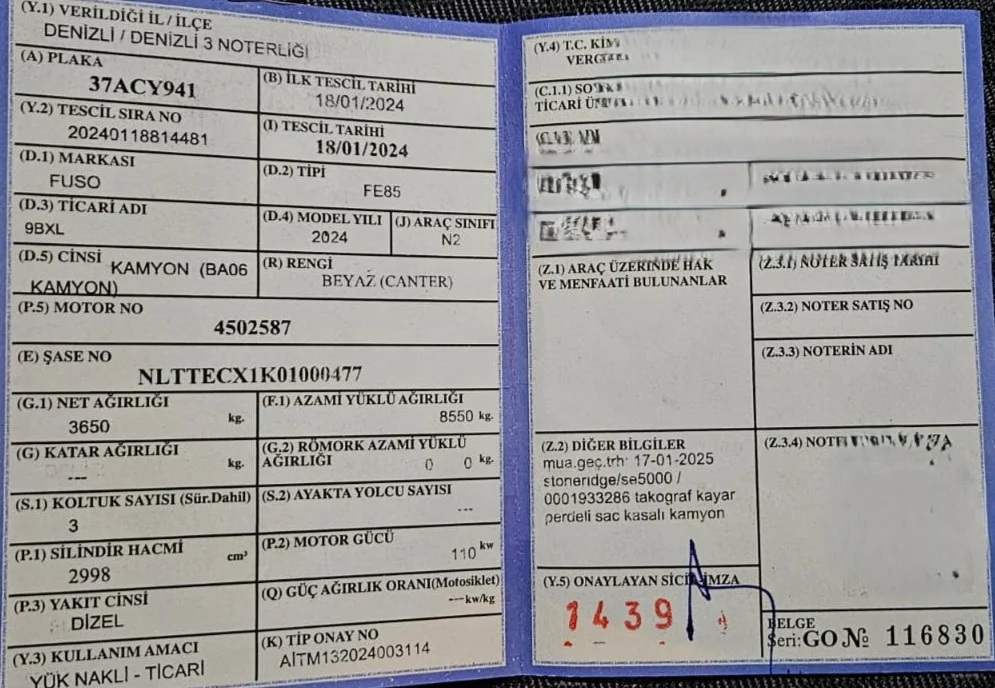 (Y.1) VERİLDİĞİ İL / İLÇE
DENİZLİ / DENİZLİ 3 NOTERLİĞİ
(A) PLAKA
37ACY941
(B) İLK TESCİL TARİHİ
18/01/2024
(Y.2) TESCİL SIRA NO
20240118814481
(I) TESCİL TARİHİ
18/01/2024
(D.1) MARKASI
FUSO
(D.2) TİPİ
FE85
(D.3) TİCARİ ADI
9BXL
(D.4) MODEL YILI
2024
(J) ARAÇ SINIFI
N2
(D.5) CİNSİ
KAMYON (BA06
KAMYON)
(R) RENGİ
BEYAZ (CANTER)
(P.5) MOTOR NO
4502587
(E) ŞASE NO
NLTTECX1K01000477
(G.1) NET AĞIRLIĞI
3650 kg.
(F.1) AZAMİ YÜKLÜ AĞIRLIĞI
8550 kg.
(G) KATAR AĞIRLIĞI
--- kg.
(G.2) RÖMORK AZAMİ YÜKLÜ
AĞIRLIĞI
0 0 kg.
(S.1) KOLTUK SAYISI (Sür.Dahil)
3
(S.2) AYAKTA YOLCU SAYISI
---
(P.1) SİLİNDİR HACMİ
2998 cm³
(P.2) MOTOR GÜCÜ
110 kw
(P.3) YAKIT CİNSİ
DİZEL
(Q) GÜÇ AĞIRLIK ORANI(Motosiklet)
---kw/kg
(Y.3) KULLANIM AMACI
YÜK NAKLİ - TİCARİ
(K) TİP ONAY NO
AİTM132024003114
(Y.4) T.C. KİM
VERG
(C.1.1) SO
TİCARİ ÜN
(Z.1) ARAÇ ÜZERİNDE HAK
VE MENFAATİ BULUNANLAR
(Z.3.1) NOTER SATIŞ TARİHİ
(Z.3.2) NOTER SATIŞ NO
(Z.3.3) NOTERİN ADI
(Z.2) DİĞER BİLGİLER
mua.geç.trh: 17-01-2025
stoneridge/se5000 /
0001933286 takograf kayar
perdeli sac kasalı kamyon
(Z.3.4) NOTE
(Y.5) ONAYLAYAN SİCİL İMZA
1439
BELGE
Seri: GO № 116830